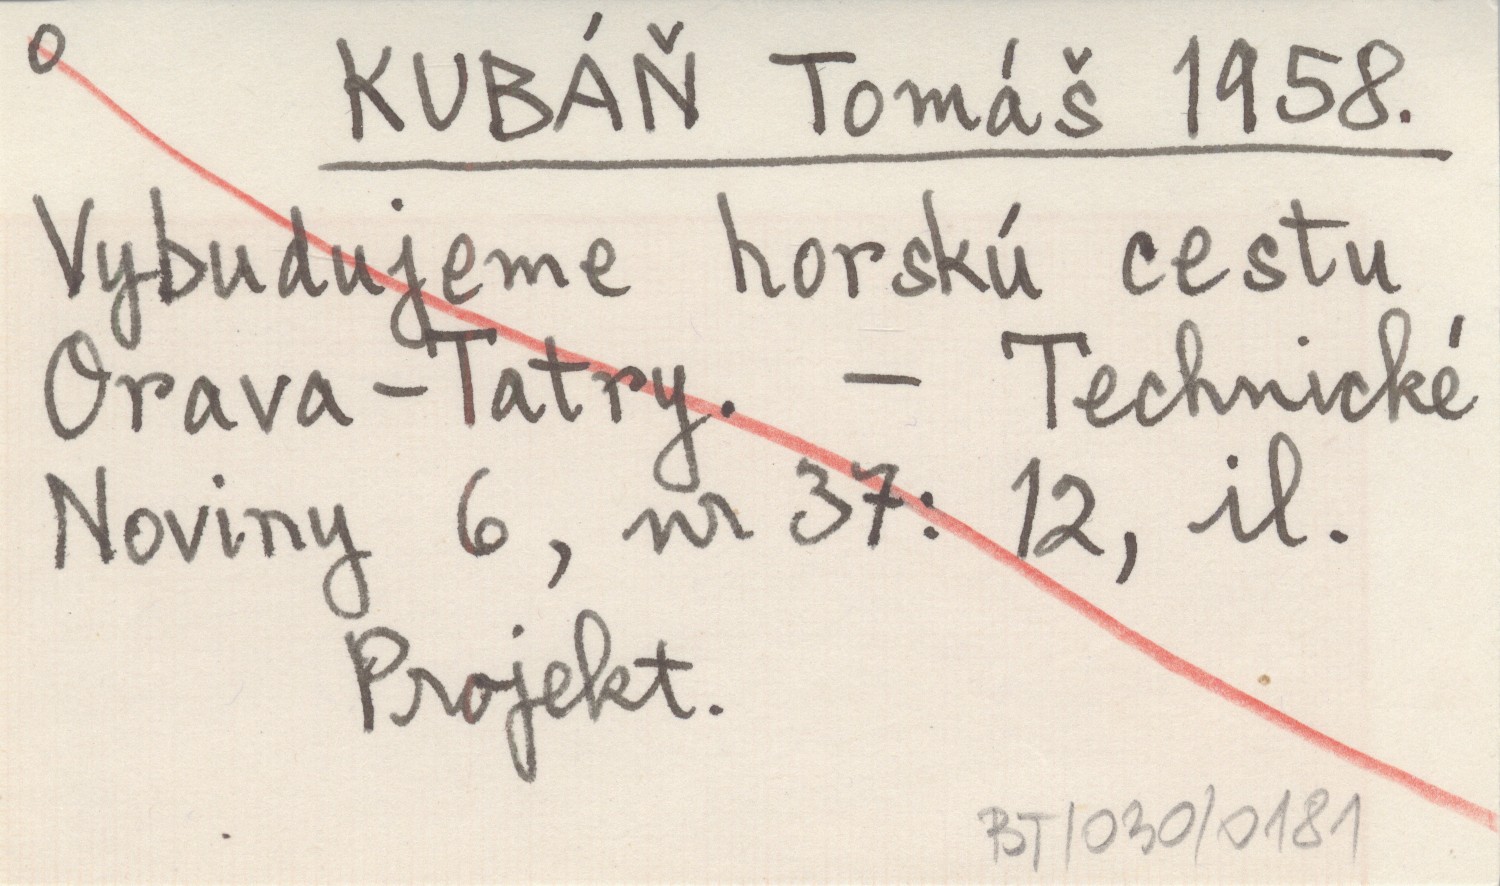 o
KUBÁŇ Tomáš 1958.
Vybudujeme horskú cestu
Orava-Tatry. – Technické
Noviny 6, nr 37: 12, il.
Projekt.
BT/030/0181